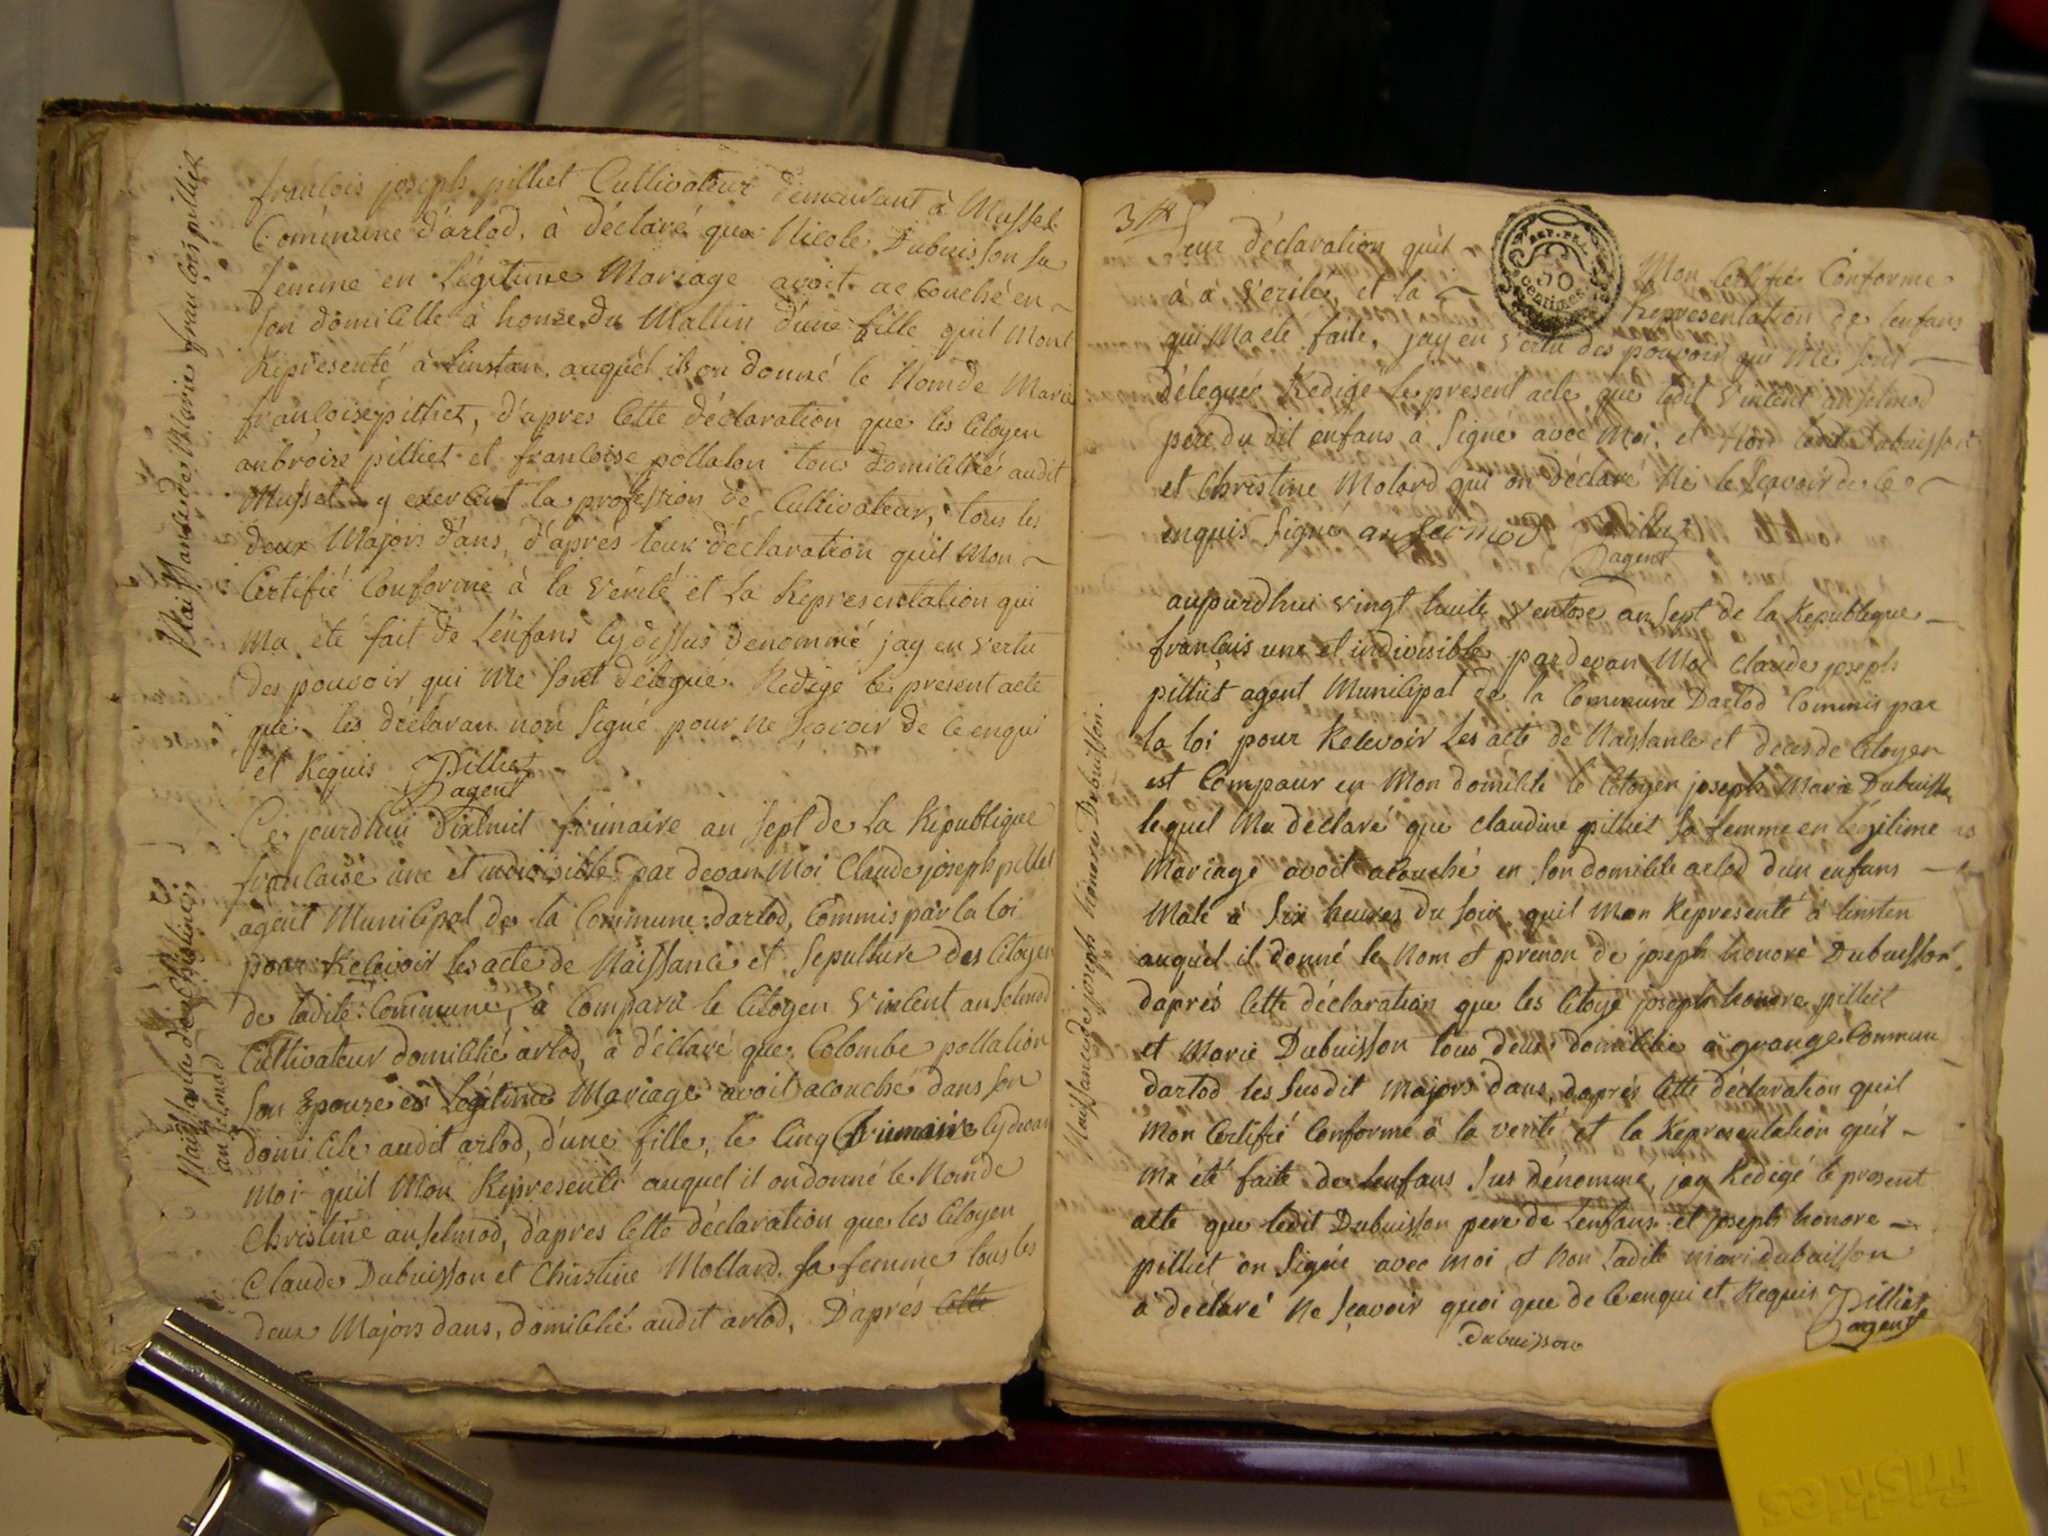 Naissance de Marie françois pilliet
françois joseph pilliet Cultivateur demeurant à Mussel
Commune d'arlod, à déclaré que Nicole Dubuisson sa
femme en Légitime Mariage avoit acouché en
son domicille à honze du Mattin d'une fille quil Mont
Representé à linstan, auquel ils on donné le Nom de Marie
françoise pilliet, d'apres Cette déclaration que les Citoyen
anbroise pilliet et françoise pollaton tous domicillié audit
Mussel y exercent la profession de Cultivateur, tous les
deux Majors d'ans, d'aprés leur déclaration quil Mon
Certifié Conforme à la vérité et la Representation qui
Ma été fait de L'enfans Cy dessus denommé jay en vertu
des pouvoir qui Me sont délegué Redigé le present acte
que les déclaran non Signé pour ne Scavoir de ce enqui
et Requis Pilliet
agent
Naissance de christine
anselmod
Ce jourd'hui dixhuit frimaire an Sept de La République
française une et indivisible par devan Moi Claude joseph pilliet
agent Municipal de la Commune darlod, Commis par la loi
pour Recevoir les acte de Naissance et Sepulture des Citoyen
de ladite Commune, à Comparu le Citoyen Vincent anselmod
Cultivateur domicilié arlod, à déclaré que Colombe pollation
son Epouze en Légitime Mariage avoit acouché dans son
domicile audit arlod, d'une fille, le Cinq frimaire Cy devan
Moi quil Mon Representé auquel il on donné le Nom de
Christine anselmod, d'apres Cette déclaration que les Citoyen
Claude Dubuisson et Christine Mollard sa femme tous les
deux Majors dans, domicilié audit arlod, D'aprés Cette
leur déclaration quil Mon Certifié Conforme
REP. FR.
50
centimes
à à vérité, et la Representation de lenfans
qui Ma eté faite, jay en vertu des pouvoir qui Me sont
délegué Redigé le present acte que ledit vincent anselmod
pere du dit enfans à Signé avec Moi, et Non Dubuisson
et Christine Molard qui on déclaré Ne le Scavoir de ce
enquis Signé anselmod
agent
Naissance de joseph honoré Dubuisson.
aujourdhui vingt huite ventose an Sept de la Republique
français une et indivisible pardevan Moi Claude joseph
pilliet agent Municipal de la Commune Darlod Commis par
la loi pour Recevoir Les acte de Naissance et deces de Citoyen
est Comparu en Mon domicile le Citoyen joseph Marie Dubuisson
lequel Ma déclaré que claudine pilliet sa femme en légitime
Mariage avoit acouché en son domicile arlod d'un enfans
Male à Six heures du soir quil Mon Representé à linsten
auquel il donné le Nom et prenon de joseph honoré Dubuisson
daprés Cette déclaration que les Citoyé joseph honore pilliet
et Marie Dubuisson tous deux domicilie à grange Commun
darlod les Susdit Majors dans, daprés Cette déclaration quil
Mon Certifié Conforme à la verité et la Representation quil
Ma été faite de lenfans Sus dénommé, jay Redigé le present
acte que ledit Dubuisson pere de Lenfans et joseph honore
pilliet on Signé avec moi et Non Ladite mari dubuisson
à declaré Ne Scavoir quoi que de ce enqui et Requis Pilliet
agent
Dubuisson
Friskies